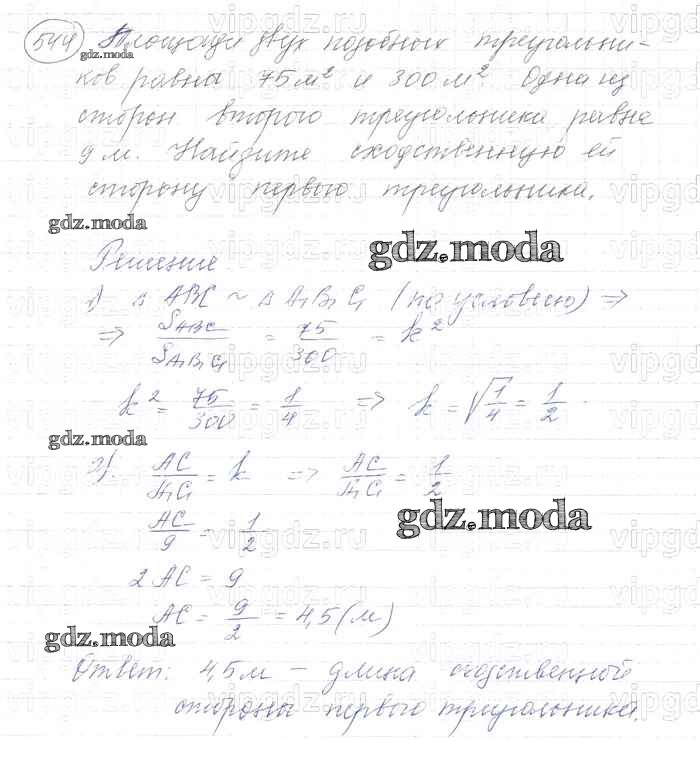 544 Площади двух подобных треугольни-
gdz.moda
ков равны 75 м² и 300 м². Одна из
сторон второго треугольника равна
9 м. Найдите сходственную ей
сторону первого треугольника.
gdz.moda
gdz.moda
Решение.
1) Δ ABC ~ Δ A₁B₁C₁ (по условию) ⇒
⇒ S_ABC / S_A₁B₁C₁ = 75/300 = k²
k² = 75/300 = 1/4 ⇒ k = √1/4 = 1/2.
gdz.moda
2) AC/A₁C₁ = k ⇒ AC/A₁C₁ = 1/2
gdz.moda
AC/9 = 1/2
2 AC = 9
AC = 9/2 = 4,5 (м)
gdz.moda
Ответ: 4,5 м – длина сходственной
стороны первого треугольника.